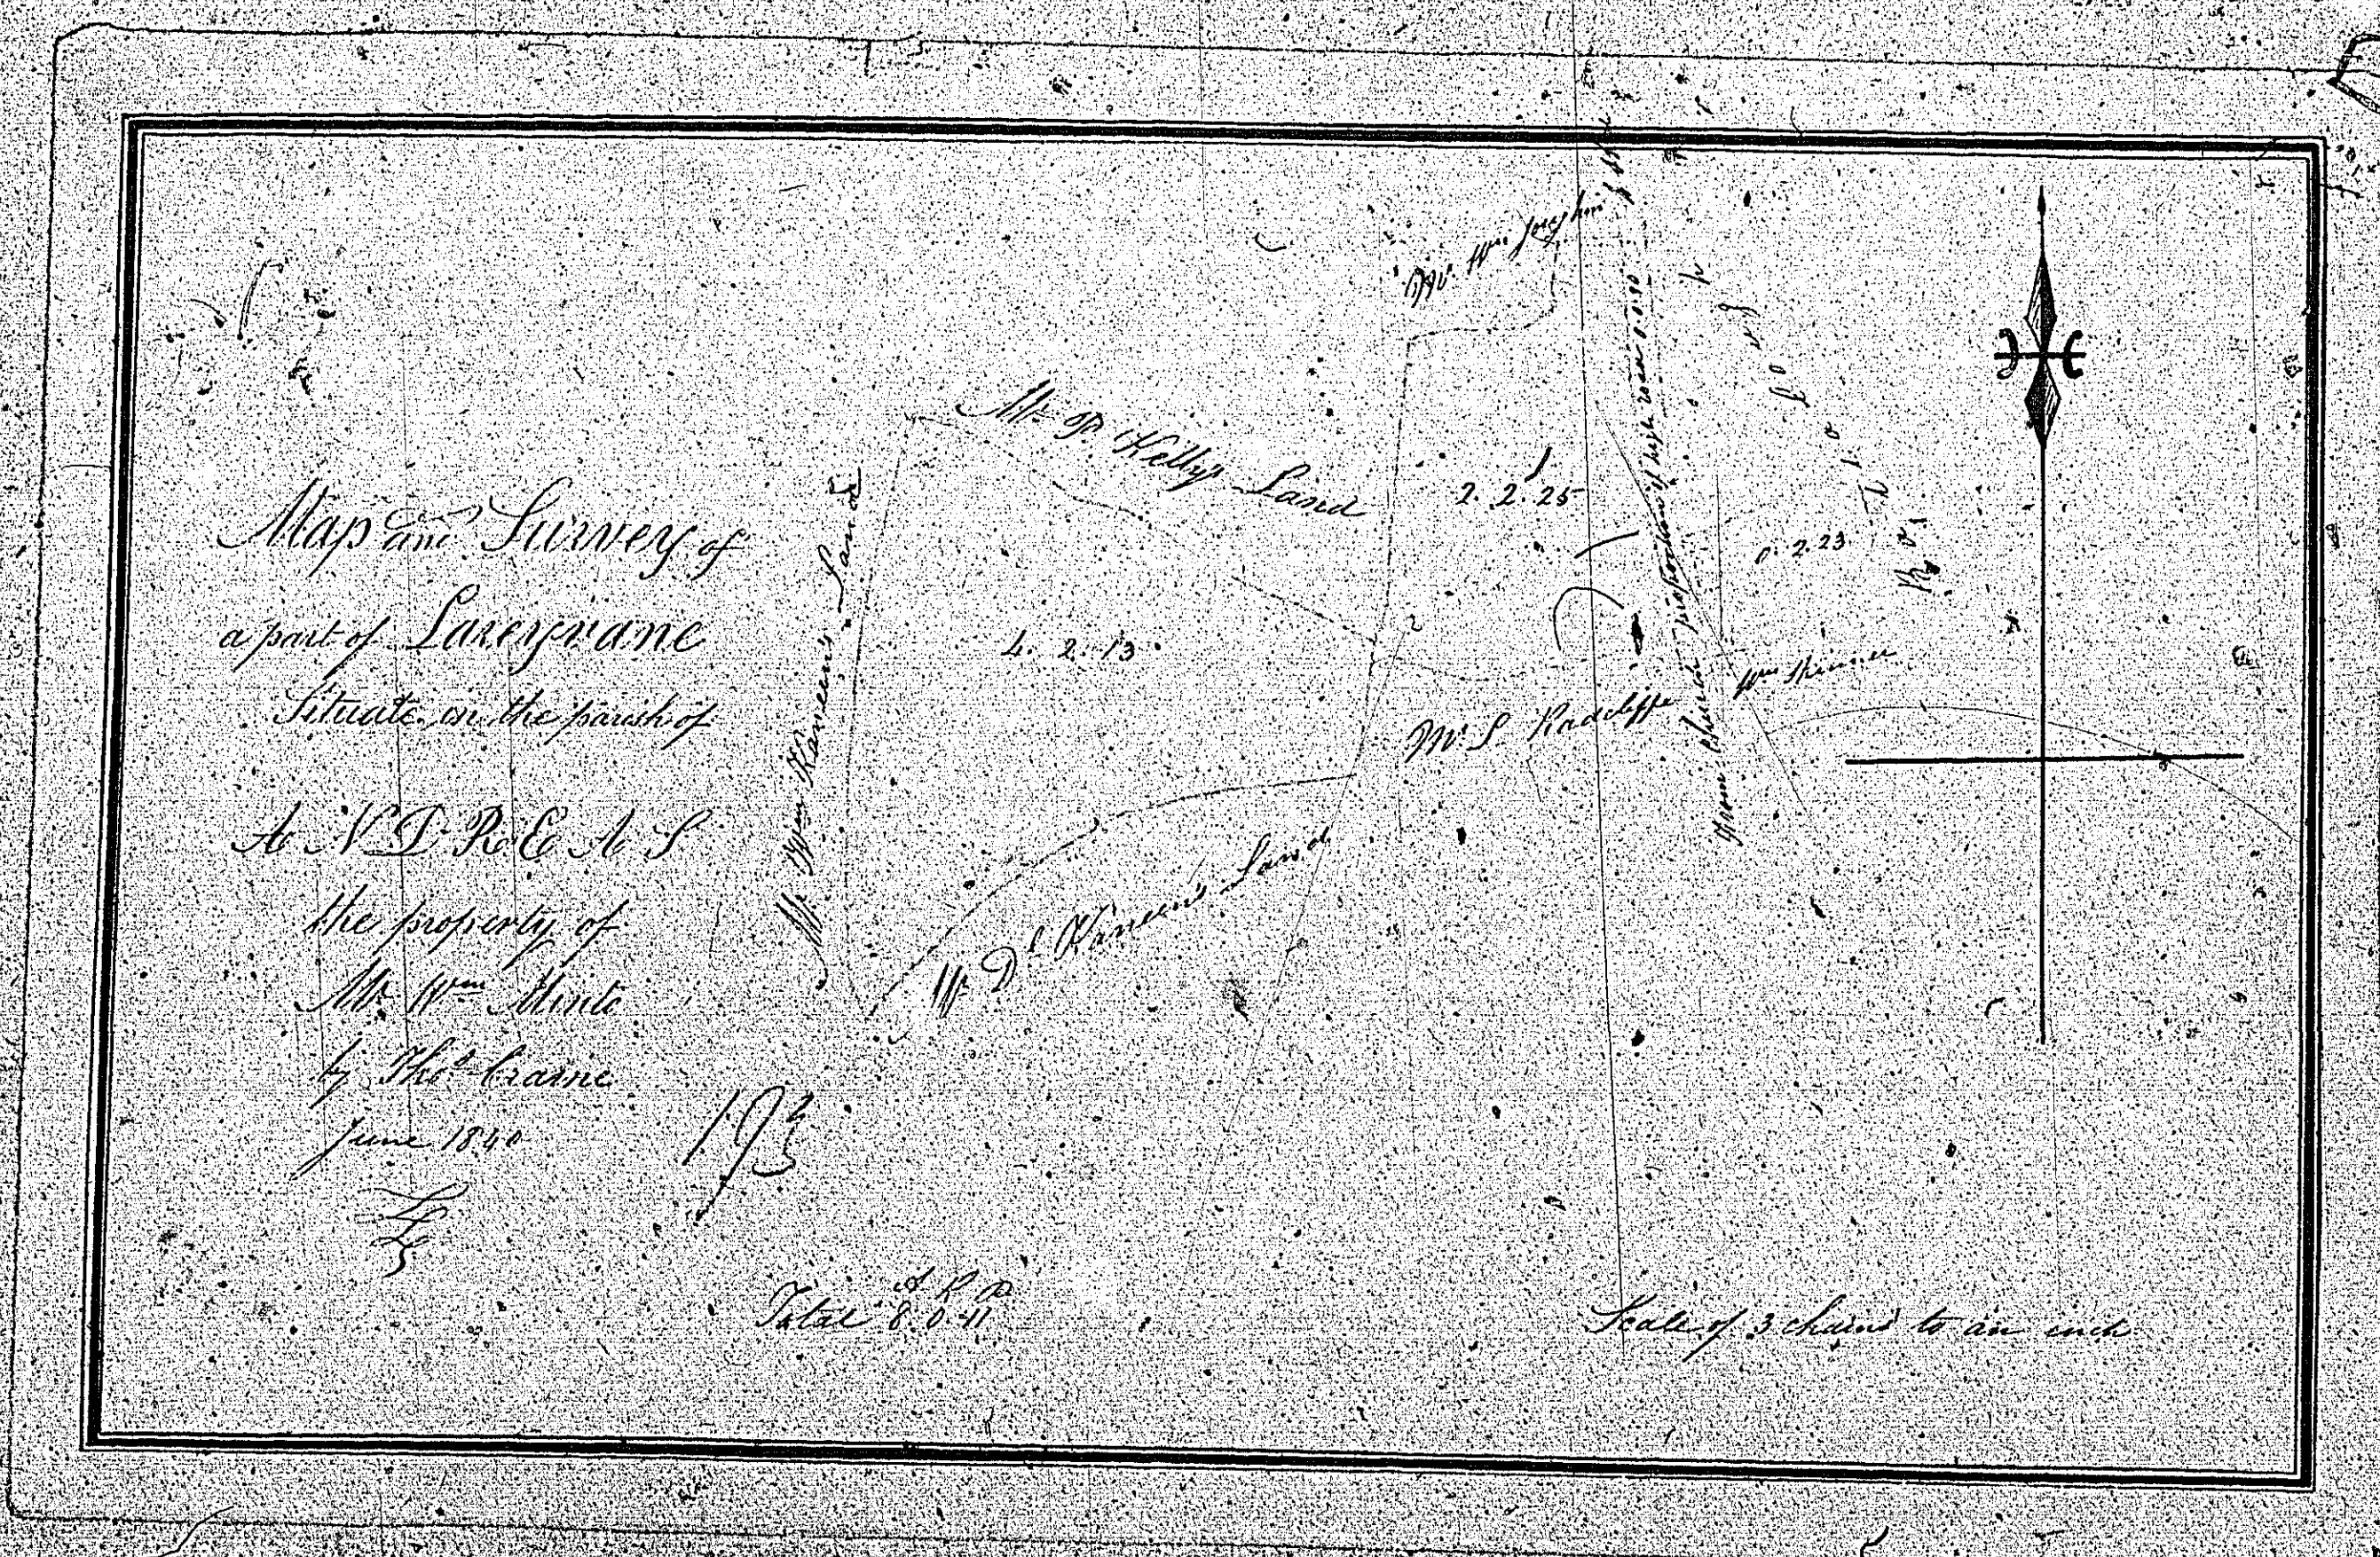 Map and Survey of
a part of Lareyvane
Situate in the parish of
ANDREAS
the property of
Mr Wm
by Thos Craine
June 1840
193
Mr Wm Kaneen's Land
Mr P. Kelly's Land
4. 2. 13
Mr Dl Kaneen's Land
Mr Wm Joughin
1
2. 2. 25
Mr S. Radcliffe
proportion of high road 0.0.30
0. 2. 23
Wm Skinner
Total
A R P
8. 0. 11
Scale of 3 chains to an inch